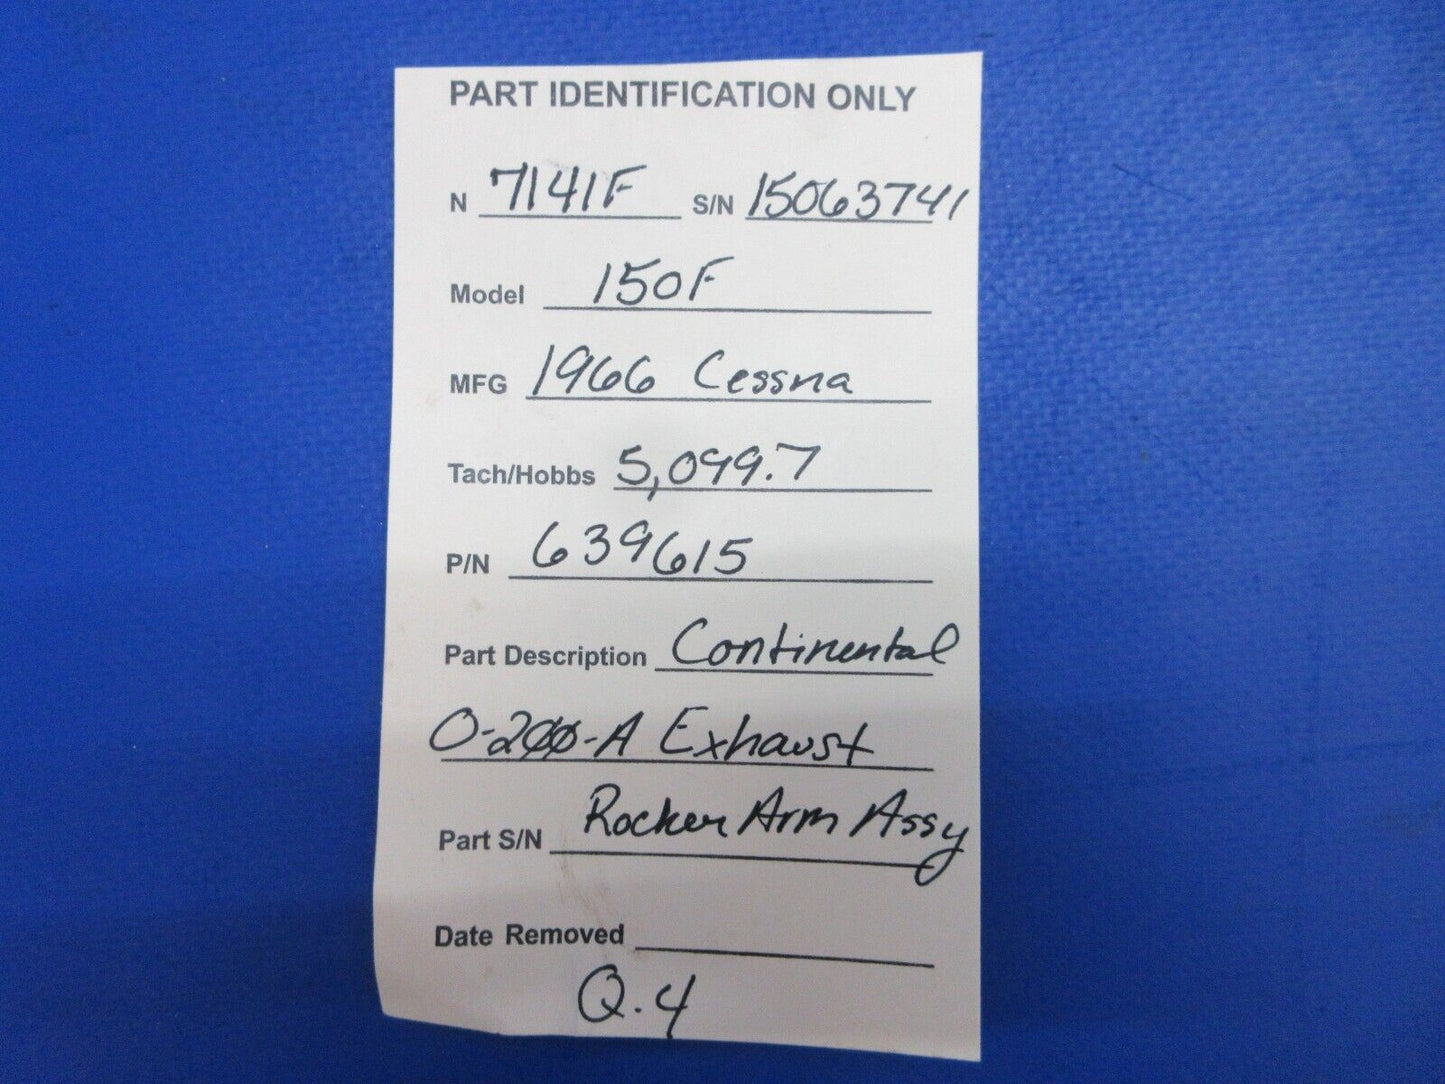 PART IDENTIFICATION ONLY
N 7141F S/N 15063741
Model 150F
MFG 1966 Cessna
Tach/Hobbs 5,099.7
P/N 639615
Part Description Continental
O-200-A Exhaust
Rocker Arm Assy
Part S/N
Date Removed
Q.4